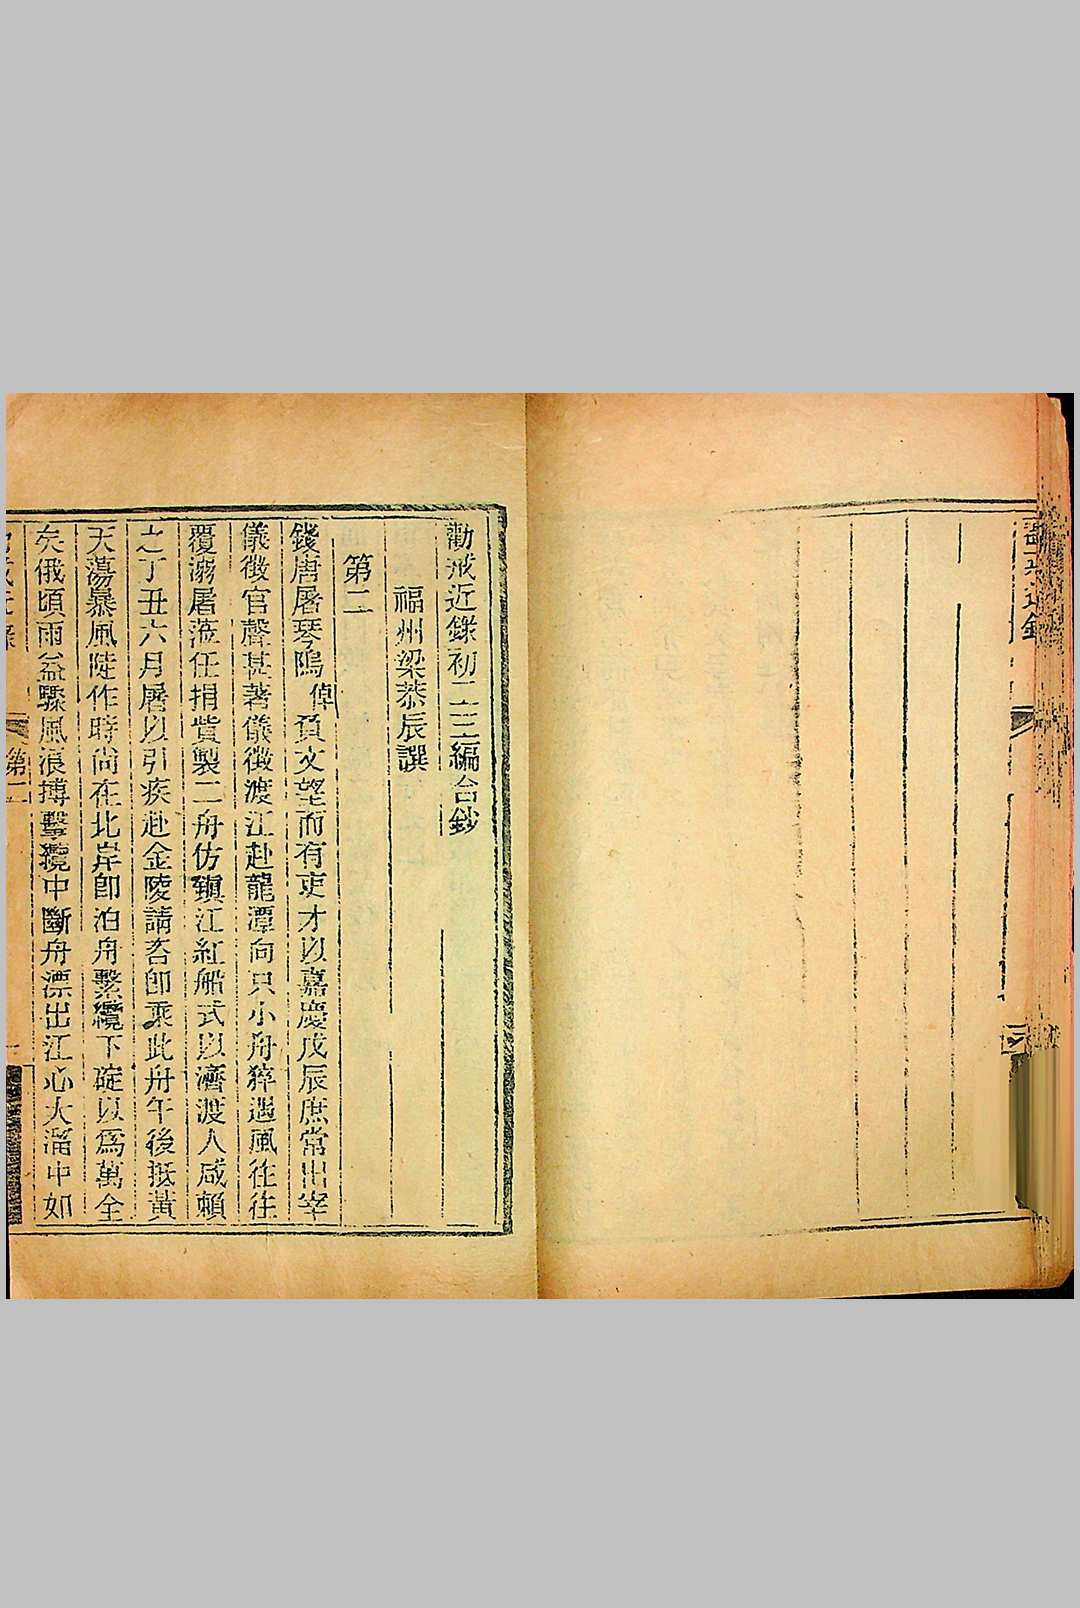 勸戒近錄初二三編合鈔
福州梁恭辰譔
第二
錢唐屠琴隝倬負文望而有吏才以嘉慶戊辰庶常出宰
儀徵官聲甚著儀徵渡江赴龍潭向只小舟猝遇風往往
覆溺屠蒞任捐貲製二舟仿鎭江紅船式以濟渡人咸賴
之丁丑六月屠以引疾赴金陵請咨卽乘此舟午後抵黃
天蕩暴風陡作時尙在北岸卽泊舟繫纜下碇以爲萬全
矣俄頃雨益驟風浪搏擊纜中斷舟漂出江心大溜中如
第二